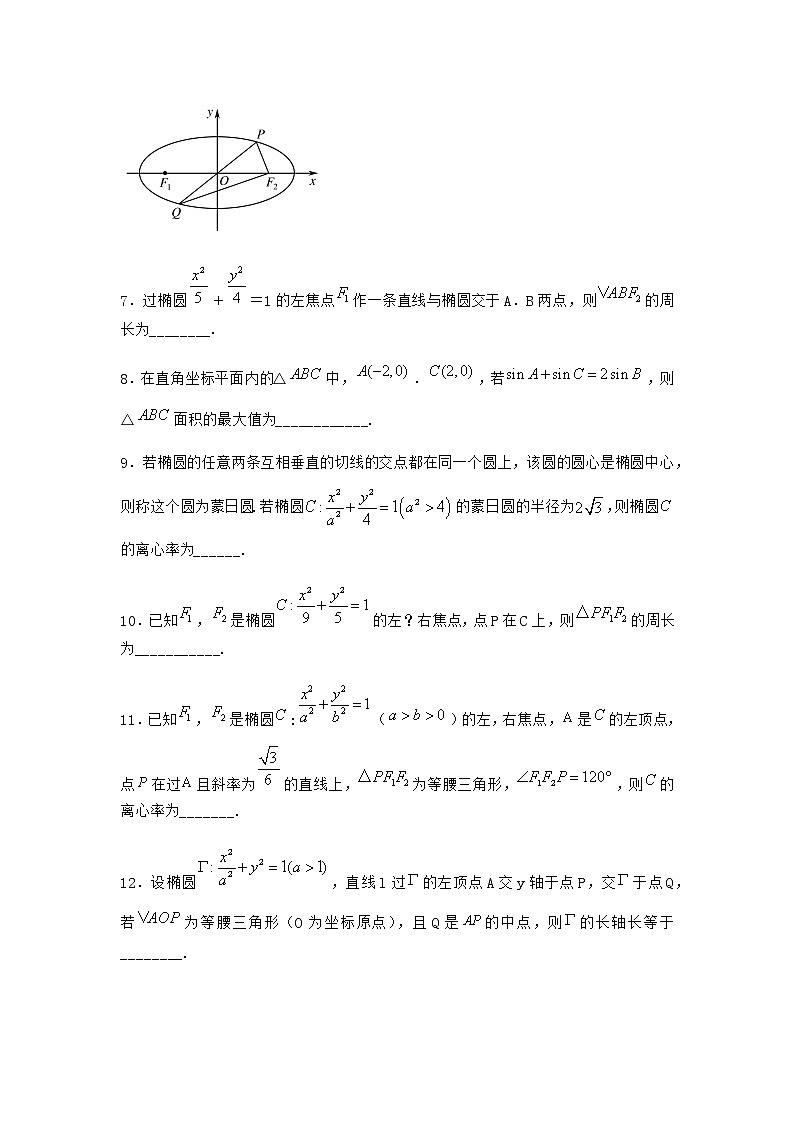 y
P
F₁ O F₂ x
Q
7.过椭圆x²/5+y²/4=1的左焦点F₁作一条直线与椭圆交于A.B两点,则VABF₂的周
长为________.
8.在直角坐标平面内的△ABC中,A(−2,0).C(2,0),若sin A+sin C=2sin B,则
△ABC面积的最大值为____________.
9.若椭圆的任意两条互相垂直的切线的交点都在同一个圆上,该圆的圆心是椭圆中心,
则称这个圆为蒙日圆.若椭圆C:x²/a²+y²/4=1(a²>4)的蒙日圆的半径为2√3,则椭圆C
的离心率为______.
10.已知F₁,F₂是椭圆C:x²/9+y²/5=1的左?右焦点,点P在C上,则△PF₁F₂的周长
为___________.
11.已知F₁,F₂是椭圆C:x²/a²+y²/b²=1(a>b>0)的左,右焦点,A是C的左顶点,
点P在过A且斜率为√3/6的直线上,△PF₁F₂为等腰三角形,∠F₁F₂P=120°,则C的
离心率为_______.
12.设椭圆Γ:x²/a²+y²=1(a>1),直线l过Γ的左顶点A交y轴于点P,交Γ于点Q,
若VAOP为等腰三角形(O为坐标原点),且Q是AP的中点,则Γ的长轴长等于
________.